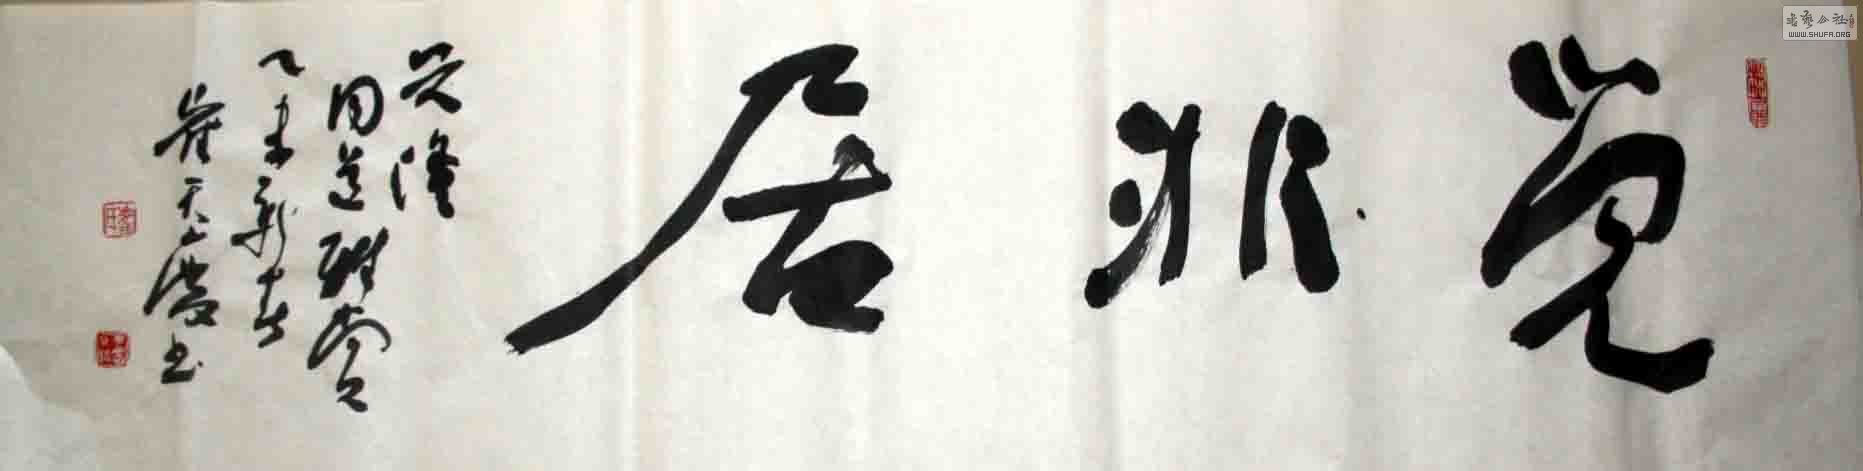 觉非居
兴隆
同道雅赏
乙未新春
崔天兴书
书艺公社
WWW.SHUFA.ORG